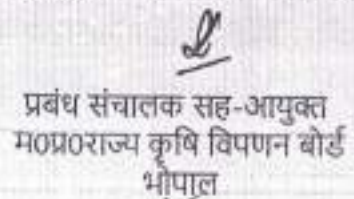 प्रबंध संचालक सह-आयुक्त
म0प्र0राज्य कृषि विपणन बोर्ड
भोपाल